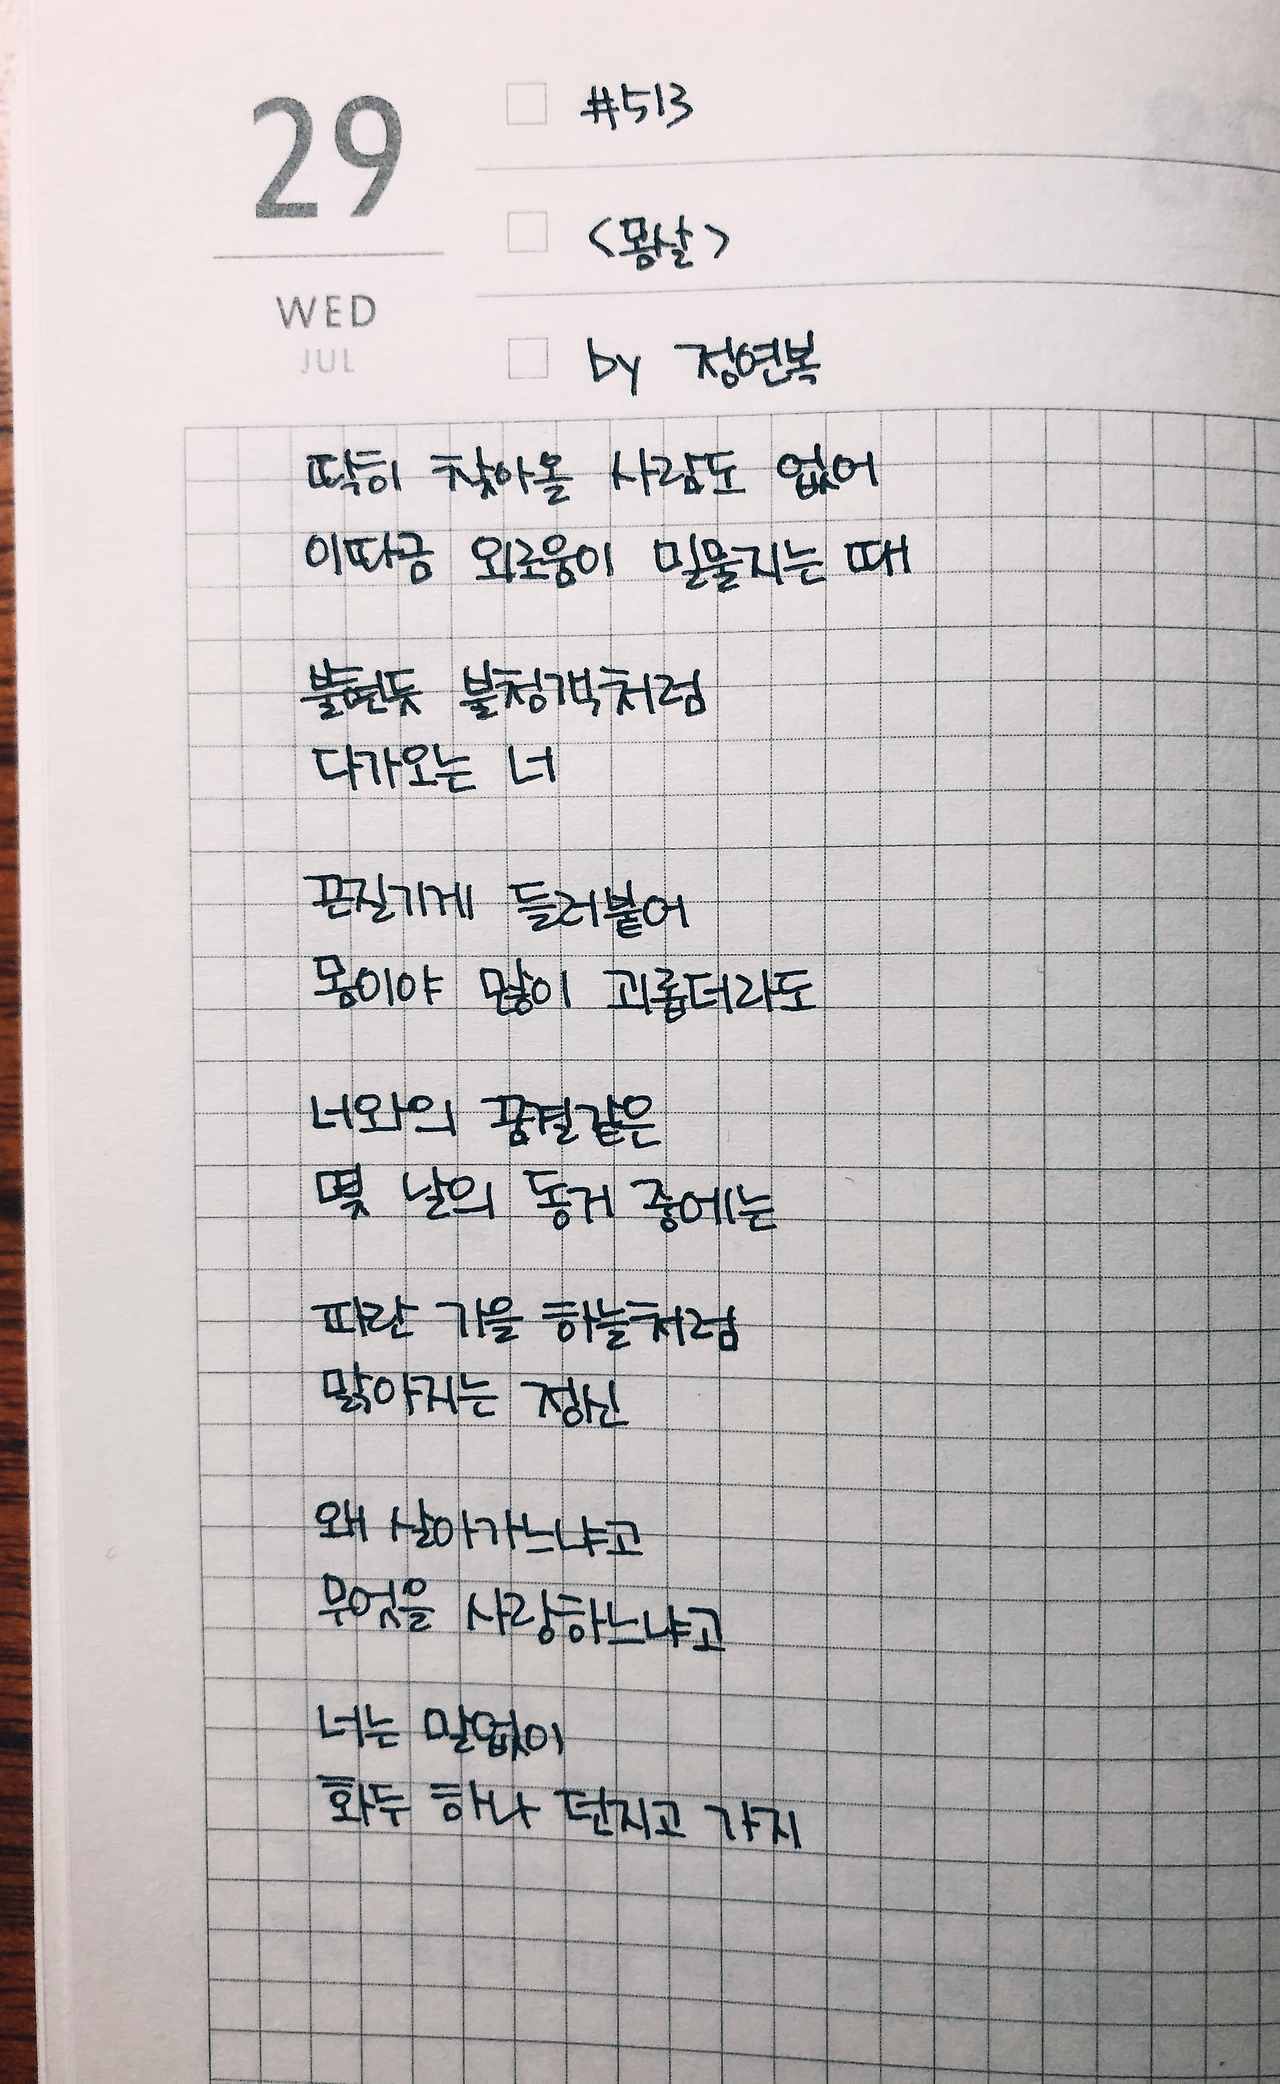 29
WED
JUL
#513
<몸살>
by 정연복
딱히 찾아올 사람도 없어
이따금 외로움이 밀물지는 때
불현듯 불청객처럼
다가오는 너
끈질기게 들러붙어
몸이야 많이 괴롭더라도
너와의 꿈결같은
몇 날의 동거 중에는
파란 가을 하늘처럼
맑아지는 정신
왜 살아가느냐고
무엇을 사랑하느냐고
너는 말없이
화두 하나 던지고 가지